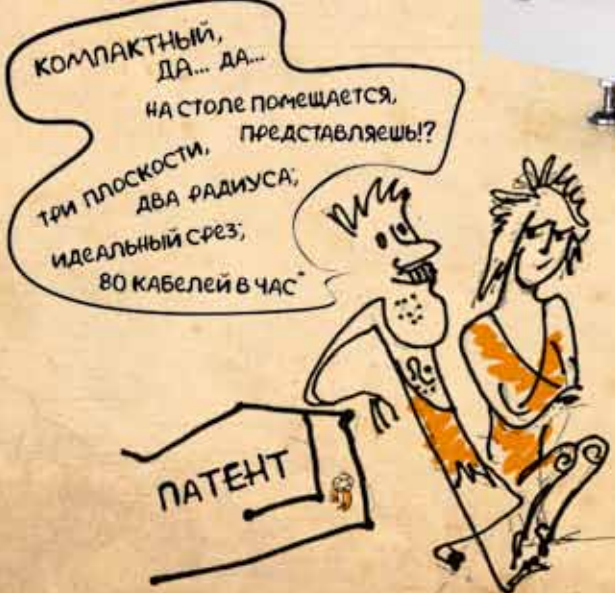 КОМПАКТНЫЙ,
ДА... ДА...
НА СТОЛЕ ПОМЕЩАЕТСЯ,
ПРЕДСТАВЛЯЕШЬ!?
ТРИ ПЛОСКОСТИ,
ДВА РАДИУСА;
ИДЕАЛЬНЫЙ СРЕЗ;
80 КАБЕЛЕЙ В ЧАС*
ПАТЕНТ